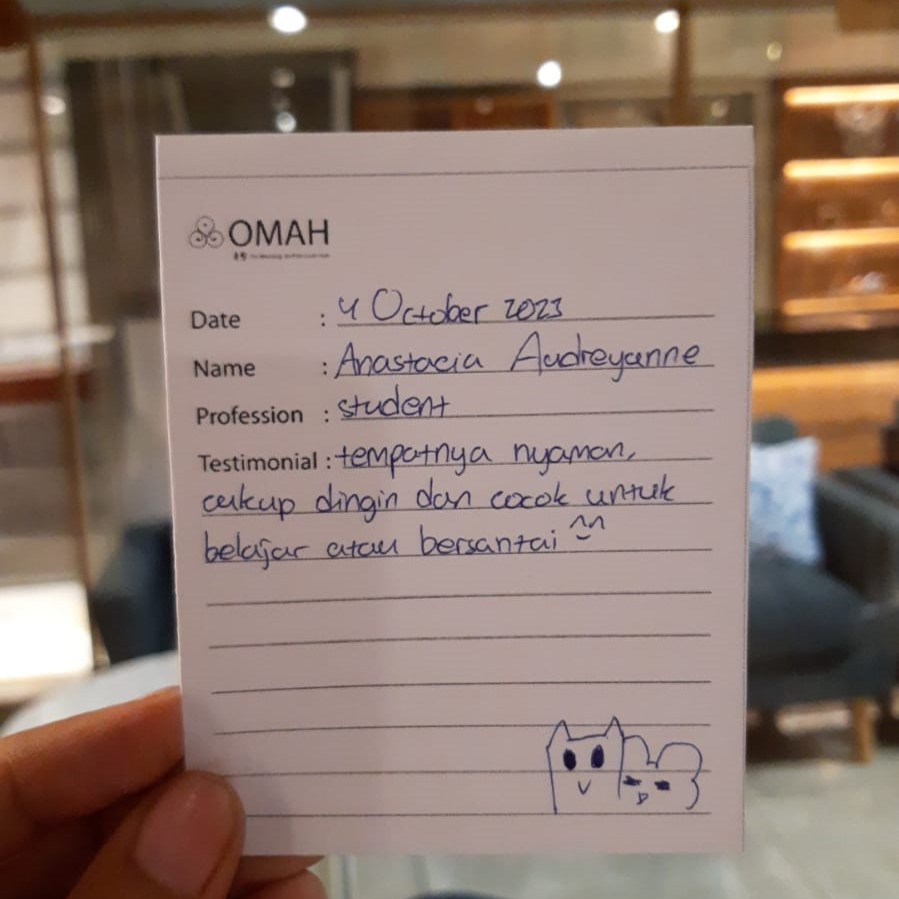 OMAH
Date : 4 October 2023
Name : Anastacia Audreyanne
Profession : student
Testimonial : tempatnya nyaman,
cukup dingin dan cocok untuk
belajar atau bersantai ^^